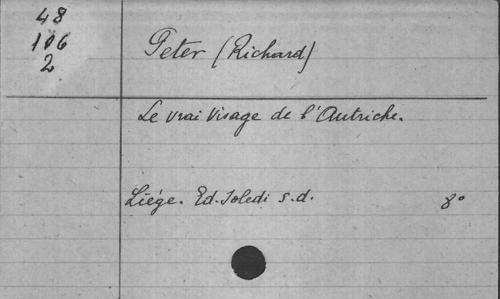 48
106
2
Peter (Richard)
Le vrai Visage de l'Autriche.
Liége. Ed. Soledi s.d. 8°